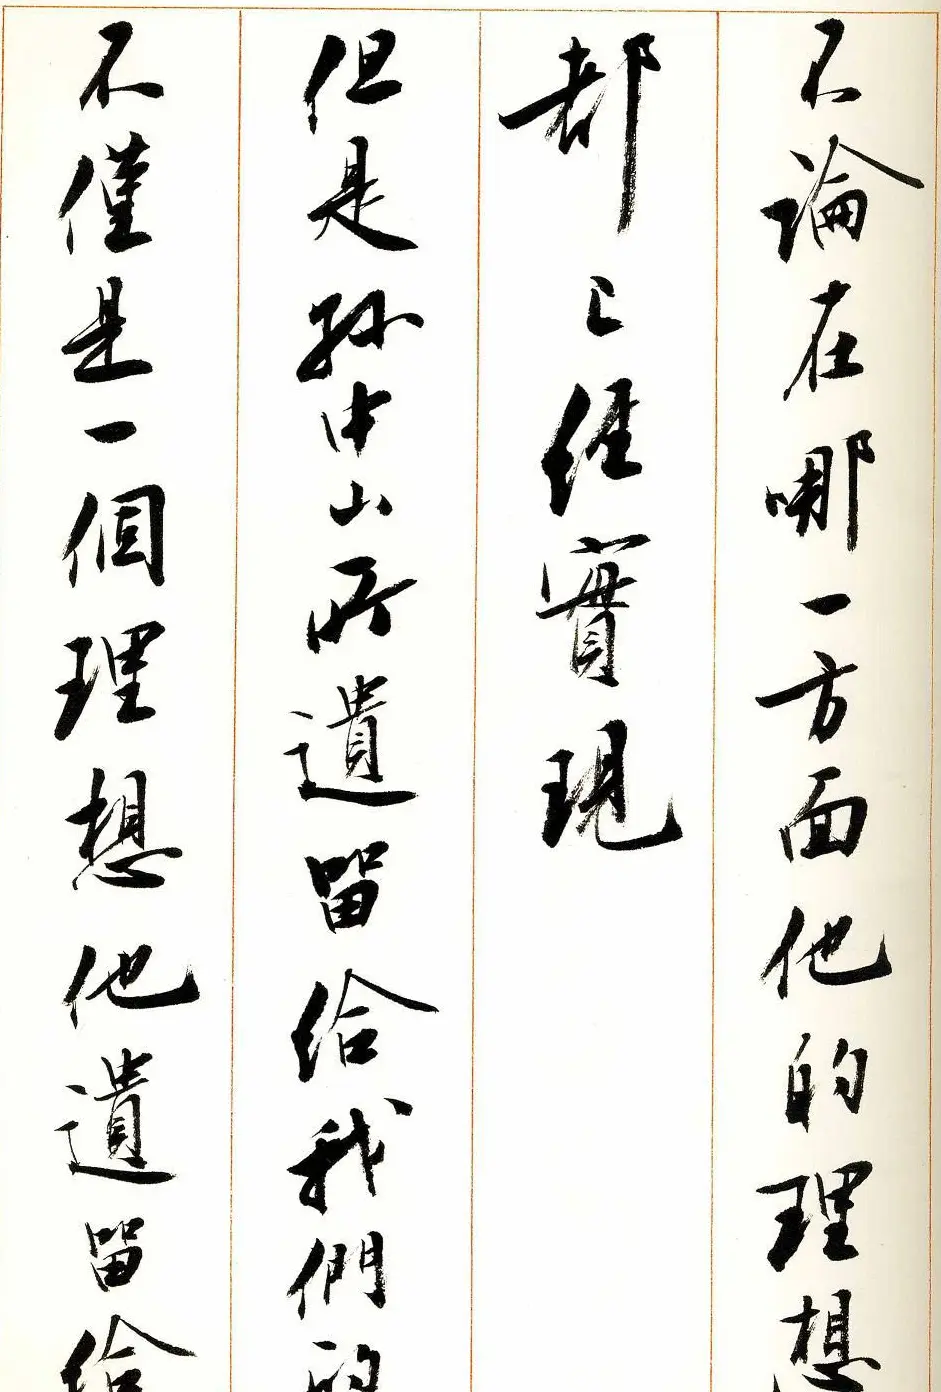 不論在哪一方面他的理想
都已經實現
但是孫中山所遺留給我們的
不僅是一個理想他遺留給